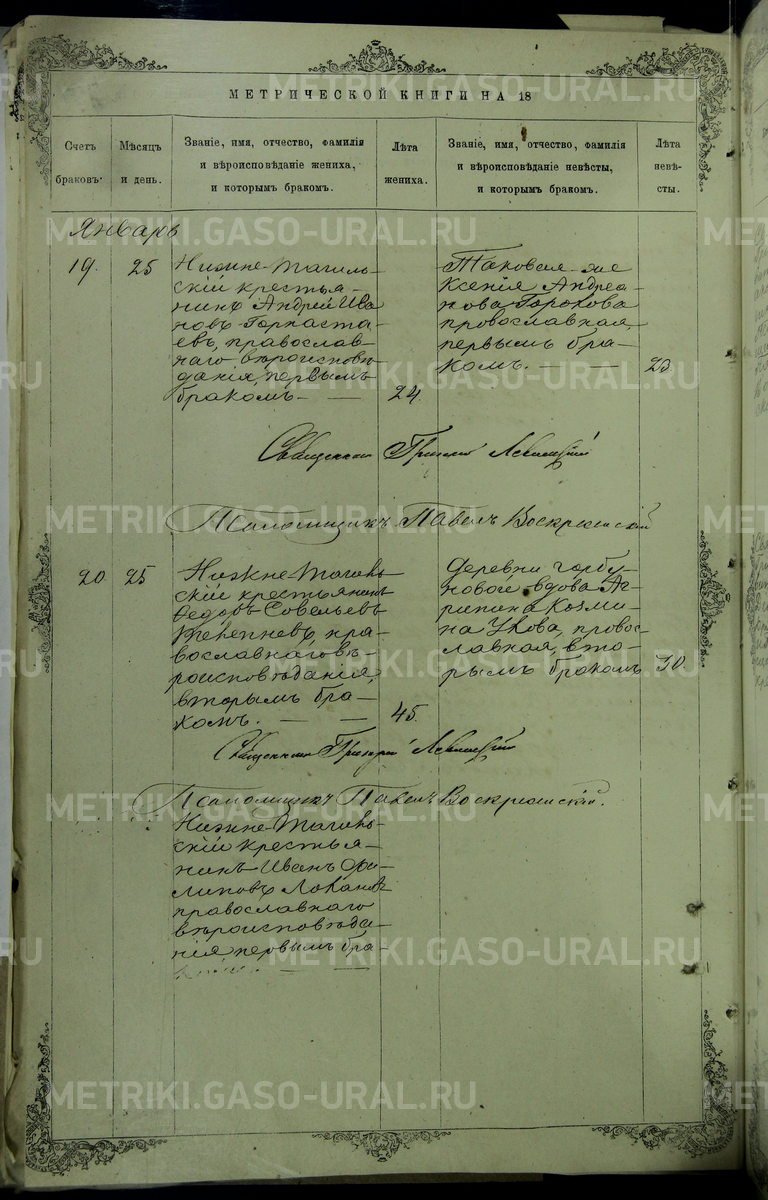 МЕТРИЧЕСКОЙ КНИГИ НА 18
Счетъ браковъ.
Мѣсяцъ и день.
Званіе, имя, отчество, фамилія
и вѣроисповѣданіе жениха,
и которымъ бракомъ.
Лѣта жениха.
Званіе, имя, отчество, фамилія
и вѣроисповѣданіе невѣсты,
и которымъ бракомъ.
Лѣта невѣ-
сты.
Январь
19.
25
Нижне-Тагиль-
скій крестья-
нинъ Андрей Ива
новъ Горпаста-
евъ, православ-
наго вѣроисповѣ
данія, первымъ
бракомъ.
24.
Таковая-же
Ксенія Андреа-
нова Горохова
провославная,
первымъ бра-
комъ.
23.
Священникъ Григорій Левицкій
Псаломщикъ Павелъ Воскресенскій
20.
25
Нижне-Тагиль-
скій крестьянинъ
Ѳедоръ Совельевъ
пра-
вославнаго вѣ-
роисповѣданія,
вторымъ бра-
комъ.
45.
Деревни Горбу-
новой вдова Аг-
рипина Козми-
на Укова, провос-
лавная, вто-
рымъ бракомъ
30.
Священникъ Григорій Левицкій
Псаломщикъ Павелъ Воскресенскій.
Нижне-Тагиль-
скій крестья-
нинъ Иванъ Фи-
липовъ
православнаго
вѣроисповѣда-
нія, первымъ бра-
METRIKI.GASO-URAL.RU